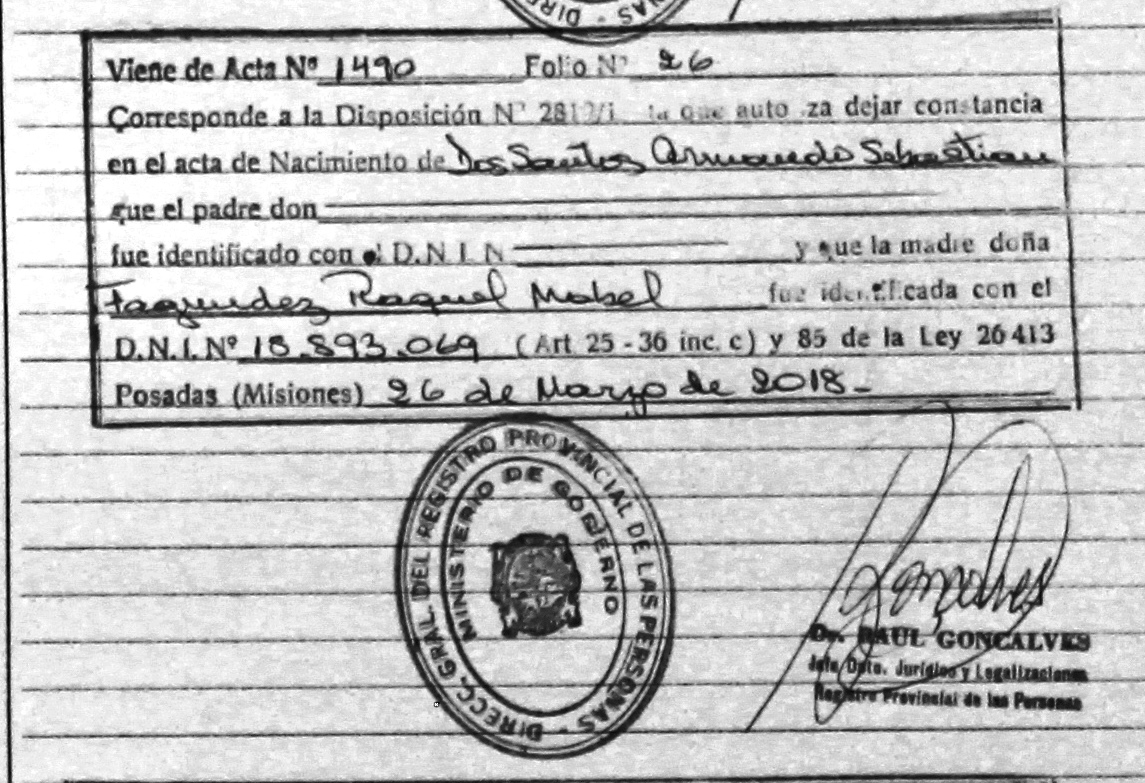 DIR
NAS
Viene de Acta Nº 1490 Folio Nº 26
Corresponde a la Disposición Nº la que autoriza dejar constancia
en el acta de Nacimiento de Dos Santos Armando Sebastian
que el padre don
fue identificado con el D.N.I. N y que la madre doña
Fagundez Raquel Mabel fue identificada con el
D.N.I. Nº 18.893.069 (Art 25 - 36 inc. c) y 85 de la Ley 26413
Posadas (Misiones) 26 de Marzo de 2018-
DIRECC. GRAL. DEL REGISTRO PROVINCIAL DE LAS PERSONAS -
MINISTERIO DE GOBIERNO
Dr. RAUL GONCALVES
Jefe Dpto. Jurídico y Legalizaciones
Registro Provincial de las Personas